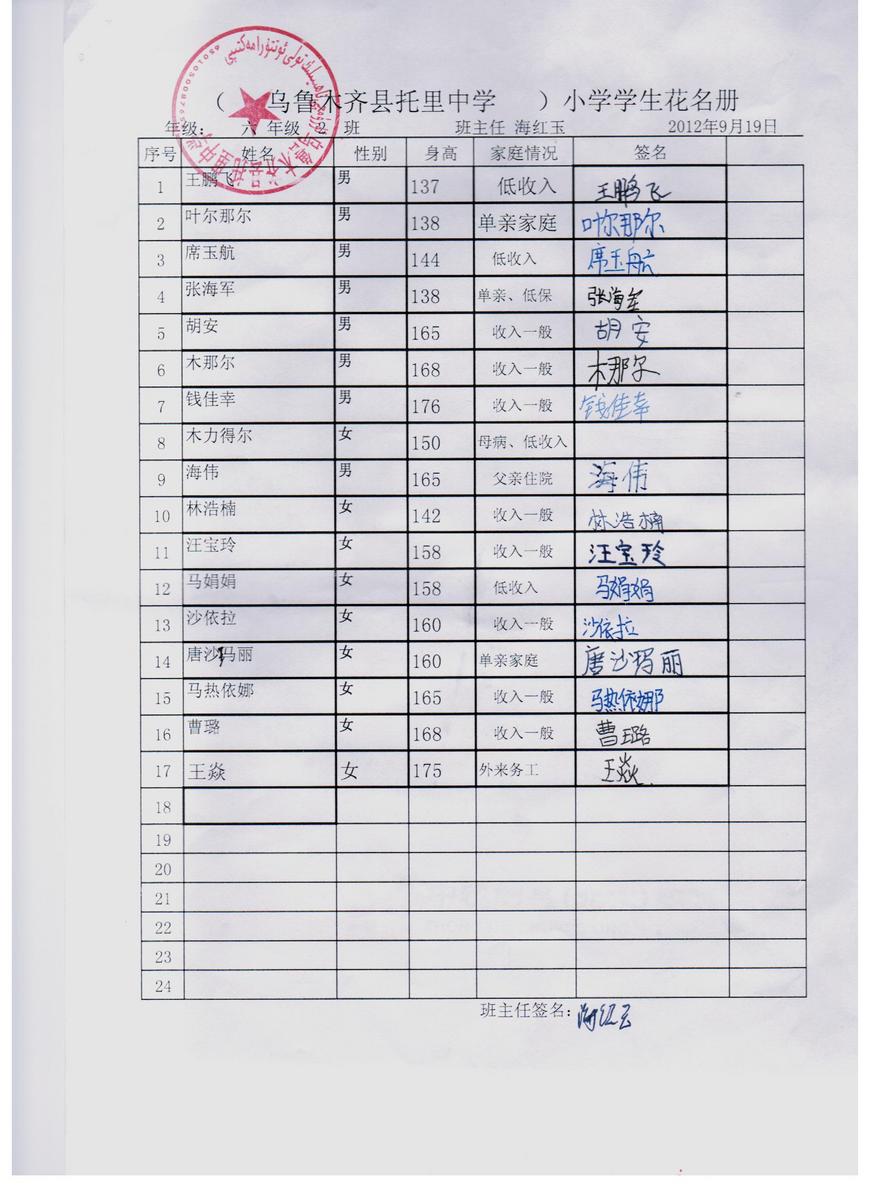 （ 乌鲁木齐县托里中学 ）小学学生花名册
年级： 六 年级 2 班 班主任 海红玉 2012年9月19日
序号 姓名 性别 身高 家庭情况 签名
1 王鹏飞 男 137 低收入 王鹏飞
2 叶尔那尔 男 138 单亲家庭 叶尔那尔
3 席玉航 男 144 低收入 席玉航
4 张海军 男 138 单亲、低保 张海军
5 胡安 男 165 收入一般 胡安
6 木那尔 男 168 收入一般 木那尔
7 钱佳幸 男 176 收入一般 钱佳幸
8 木力得尔 女 150 母病、低收入
9 海伟 男 165 父亲住院 海伟
10 林浩楠 女 142 收入一般 林浩楠
11 汪宝玲 女 158 收入一般 汪宝玲
12 马娟娟 女 158 低收入 马娟娟
13 沙依拉 女 160 收入一般 沙依拉
14 唐沙玛丽 女 160 单亲家庭 唐沙玛丽
15 马热依娜 女 165 收入一般 马热依娜
16 曹璐 女 168 收入一般 曹璐
17 王焱 女 175 外来务工 王焱
18
19
20
21
22
23
24
班主任签名：海红玉